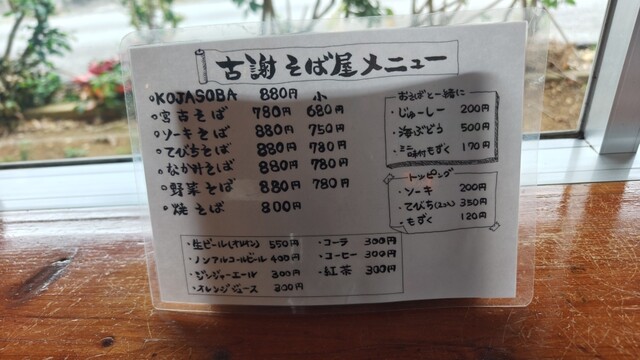 古謝そば屋メニュー
○KOJASOBA 880円 小
○宮古そば 780円 680円
○ソーキそば 880円 750円
○てびちそば 880円 780円
○なか汁そば 880円 780円
○野菜そば 880円 780円
○焼そば 800円
おそばと一緒に
・じゅーしー 200円
・海ぶどう 500円
・ミニ味付もずく 170円
トッピング
・ソーキ 200円
・てびち(2コ入) 350円
・もずく 120円
・生ビール(オリオン) 550円
・ノンアルコールビール 400円
・ジンジャーエール 300円
・オレンジジュース 300円
・コーラ 300円
・コーヒー 300円
・紅茶 300円